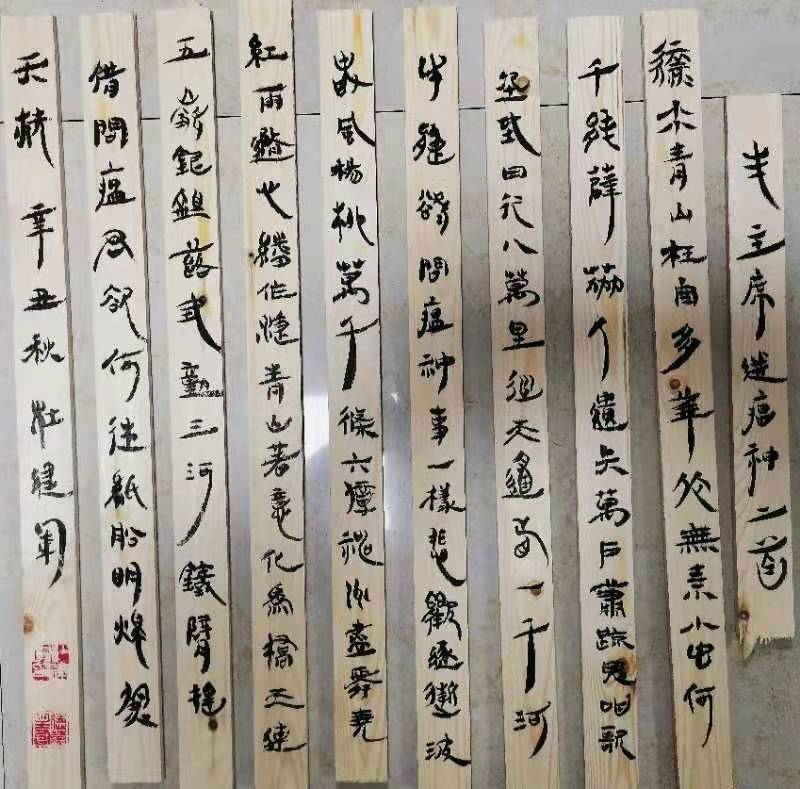 毛主席送瘟神二首
綠水青山枉自多華佗無奈小虫何
千村薜荔人遺矢萬戶蕭疏鬼唱歌
坐地日行八萬里巡天遙看一千河
牛郎欲問瘟神事一樣悲歡逐逝波
春風楊柳萬千條六億神州盡舜堯
紅雨隨心翻作浪青山著意化為橋天連
五嶺銀鋤落地動三河鐵臂搖
借問瘟君欲何往紙船明燭照
天燒辛丑秋建